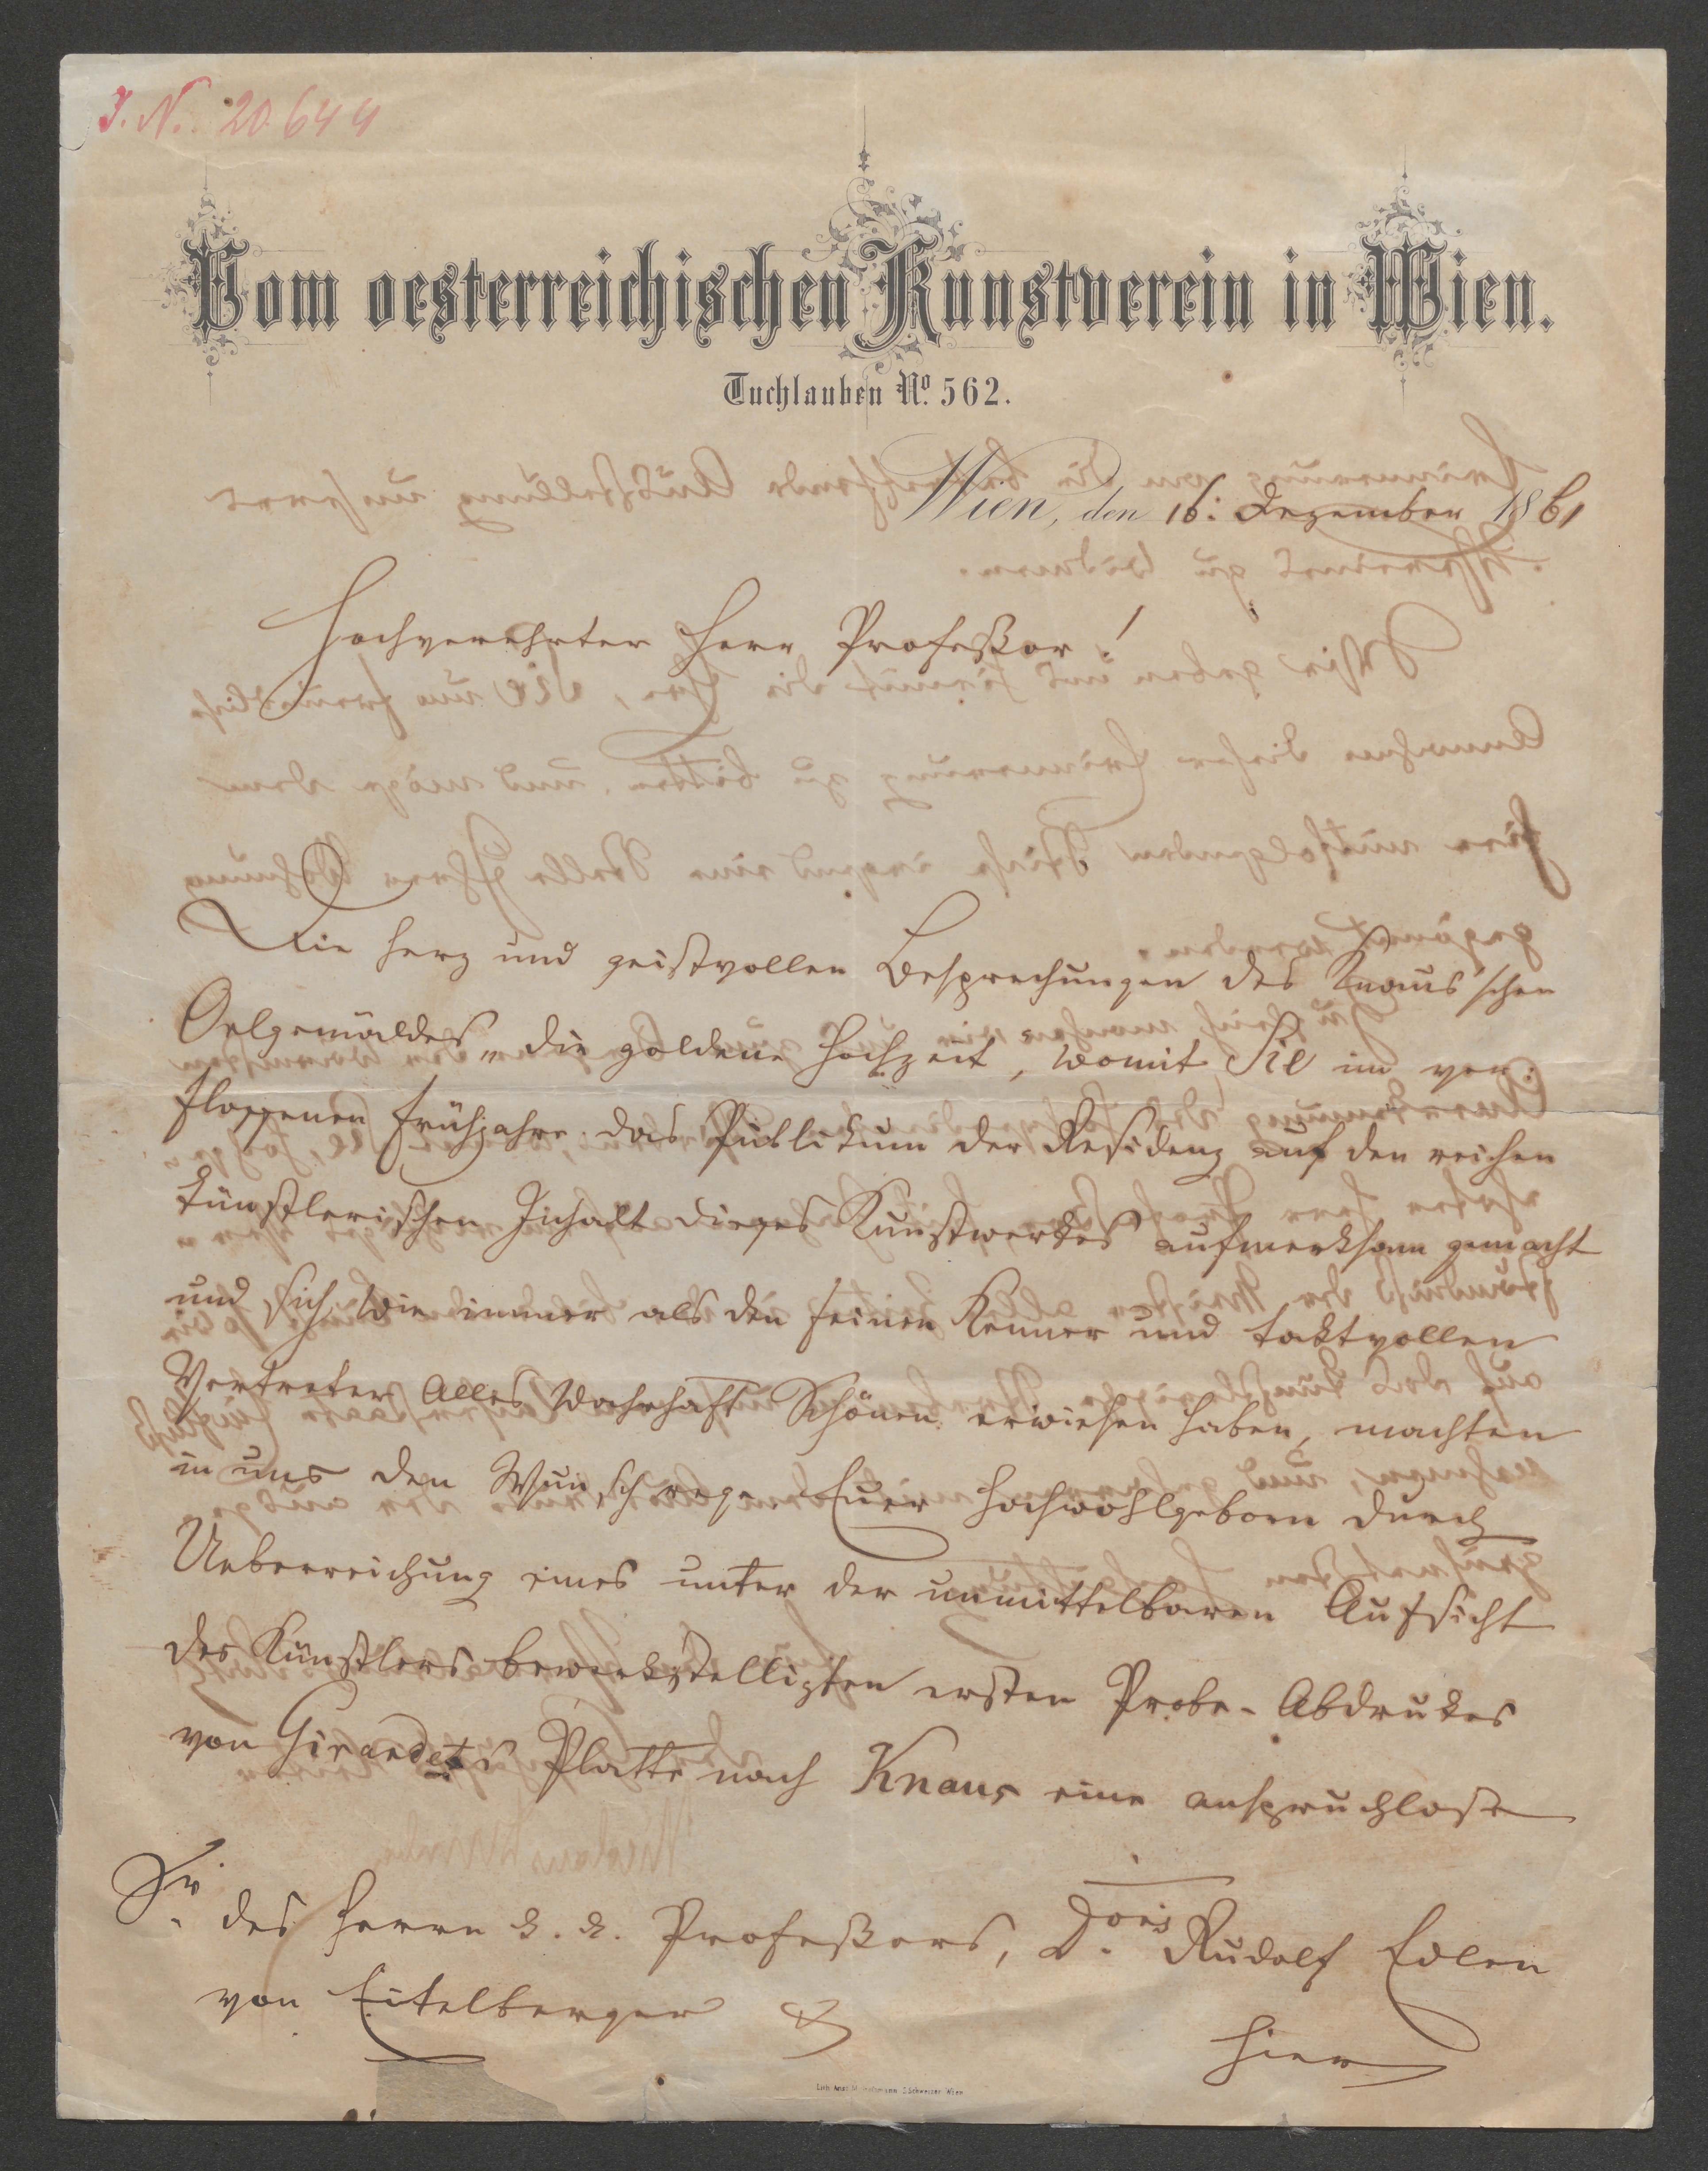 I. N. 20.644
Vom oesterreichischen Kunstverein in Wien.
Tuchlauben No. 562.
Wien, den 16: Dezember 1861
Hochverehrter Herr Profeßor!
Die herz und geistvollen Besprechungen des Knaus'schen
Oelgemäldes „die goldene Hochzeit, womit Sie im ver:
flossenen Frühjahre das Publikum der Residenz auf den reichen
künstlerischen Inhalt dieses Kunstwerkes aufmerksam gemacht
und sich wie immer als den feinen Kenner und taktvollen
Vertreter Alles wahrhaft Schönen erwiesen haben, machten
in uns den Wunsch rege Euer Hochwohlgeborn durch
Ueberreichung eines unter der unmittelbaren Aufsicht
des Künstlers bewerkstelligten ersten Probe-Abdrukes
von Girardets Platte nach Knaus eine anspruchlose
Sr. des Herrn k. k. Profeßors, D.oris Rudolf Edlen
von Eitelberger
Hier